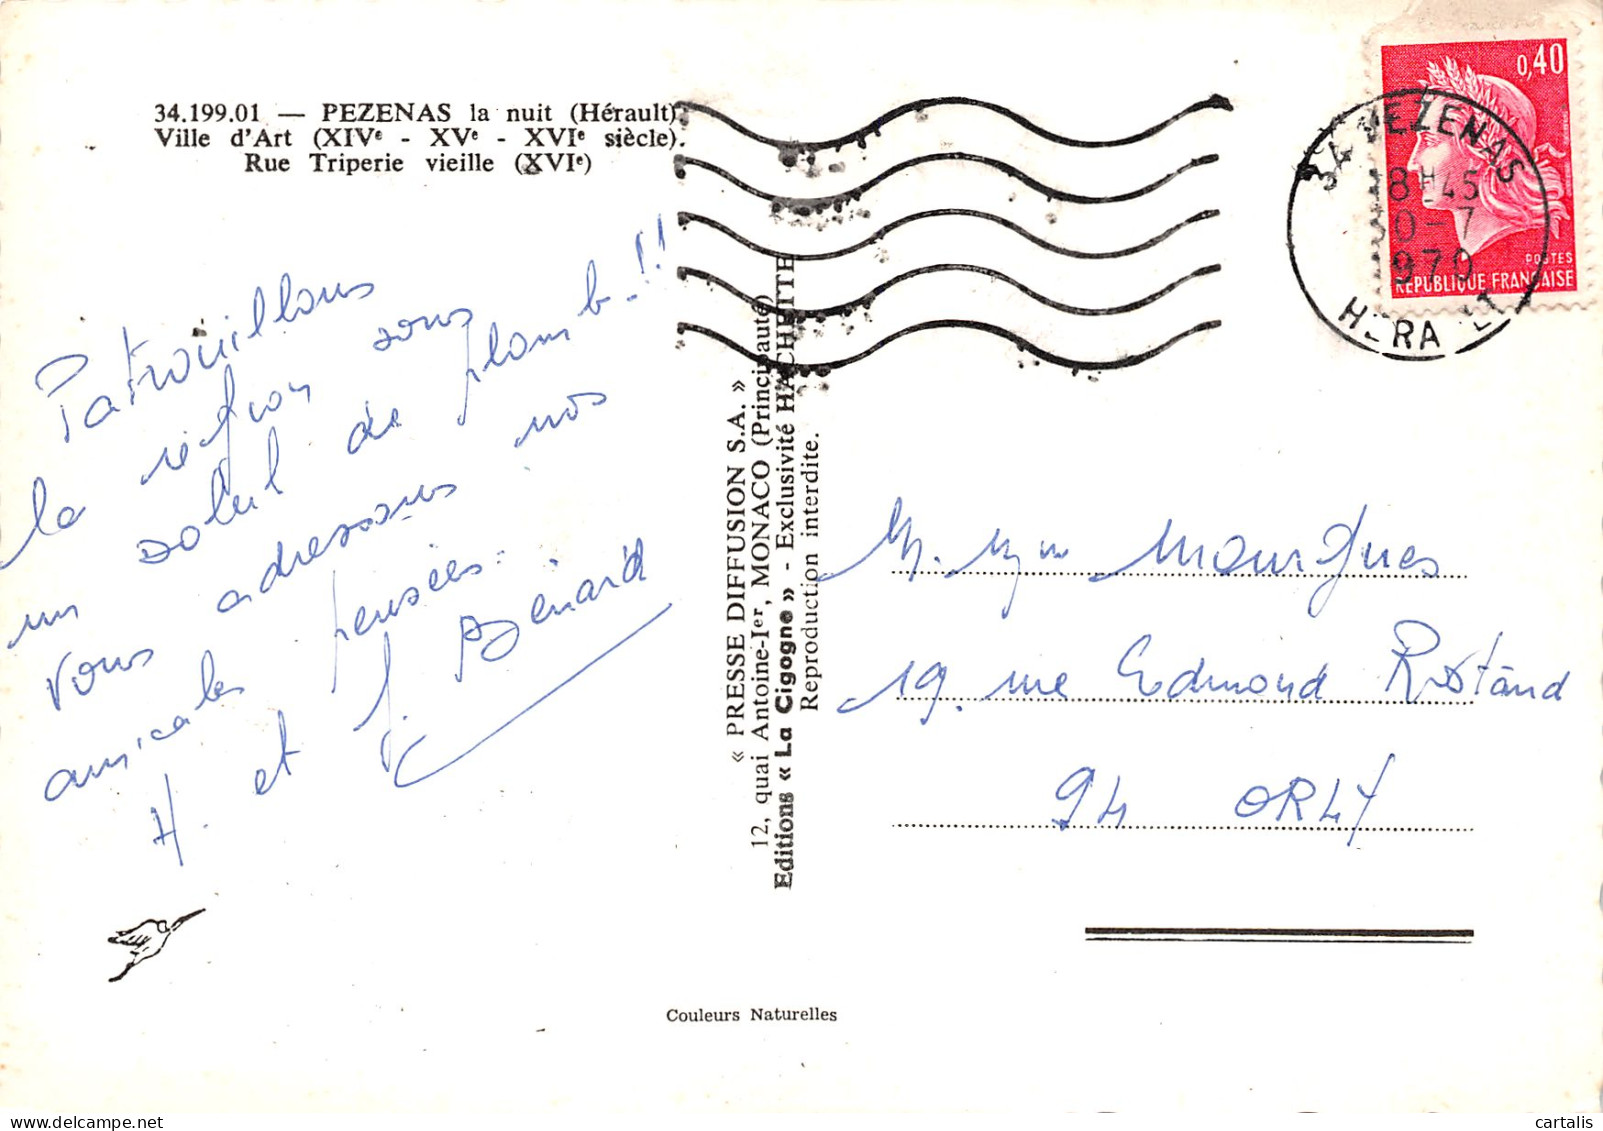 34.199.01 — PEZENAS la nuit (Hérault)
Ville d'Art (XIVᵉ - XVᵉ - XVIᵉ siècle).
Rue Triperie vieille (XVIᵉ)
Patrouillons
la région sous
un soleil de plomb-!!
vous adressons nos
amicales pensées.
H. et J. Bénard
« PRESSE DIFFUSION S.A. »
12, quai Antoine-Iᵉʳ, MONACO (Principauté)
Editions « La Cigogne » - Exclusivité HACHETTE
Reproduction interdite.
Couleurs Naturelles
0,40
POSTES
REPUBLIQUE FRANÇAISE
34 PEZENAS
18H45
30-7
1970
HERAULT
M. Mme Mourgues
19. rue Edmond Rostand
94 ORLY
cartalis